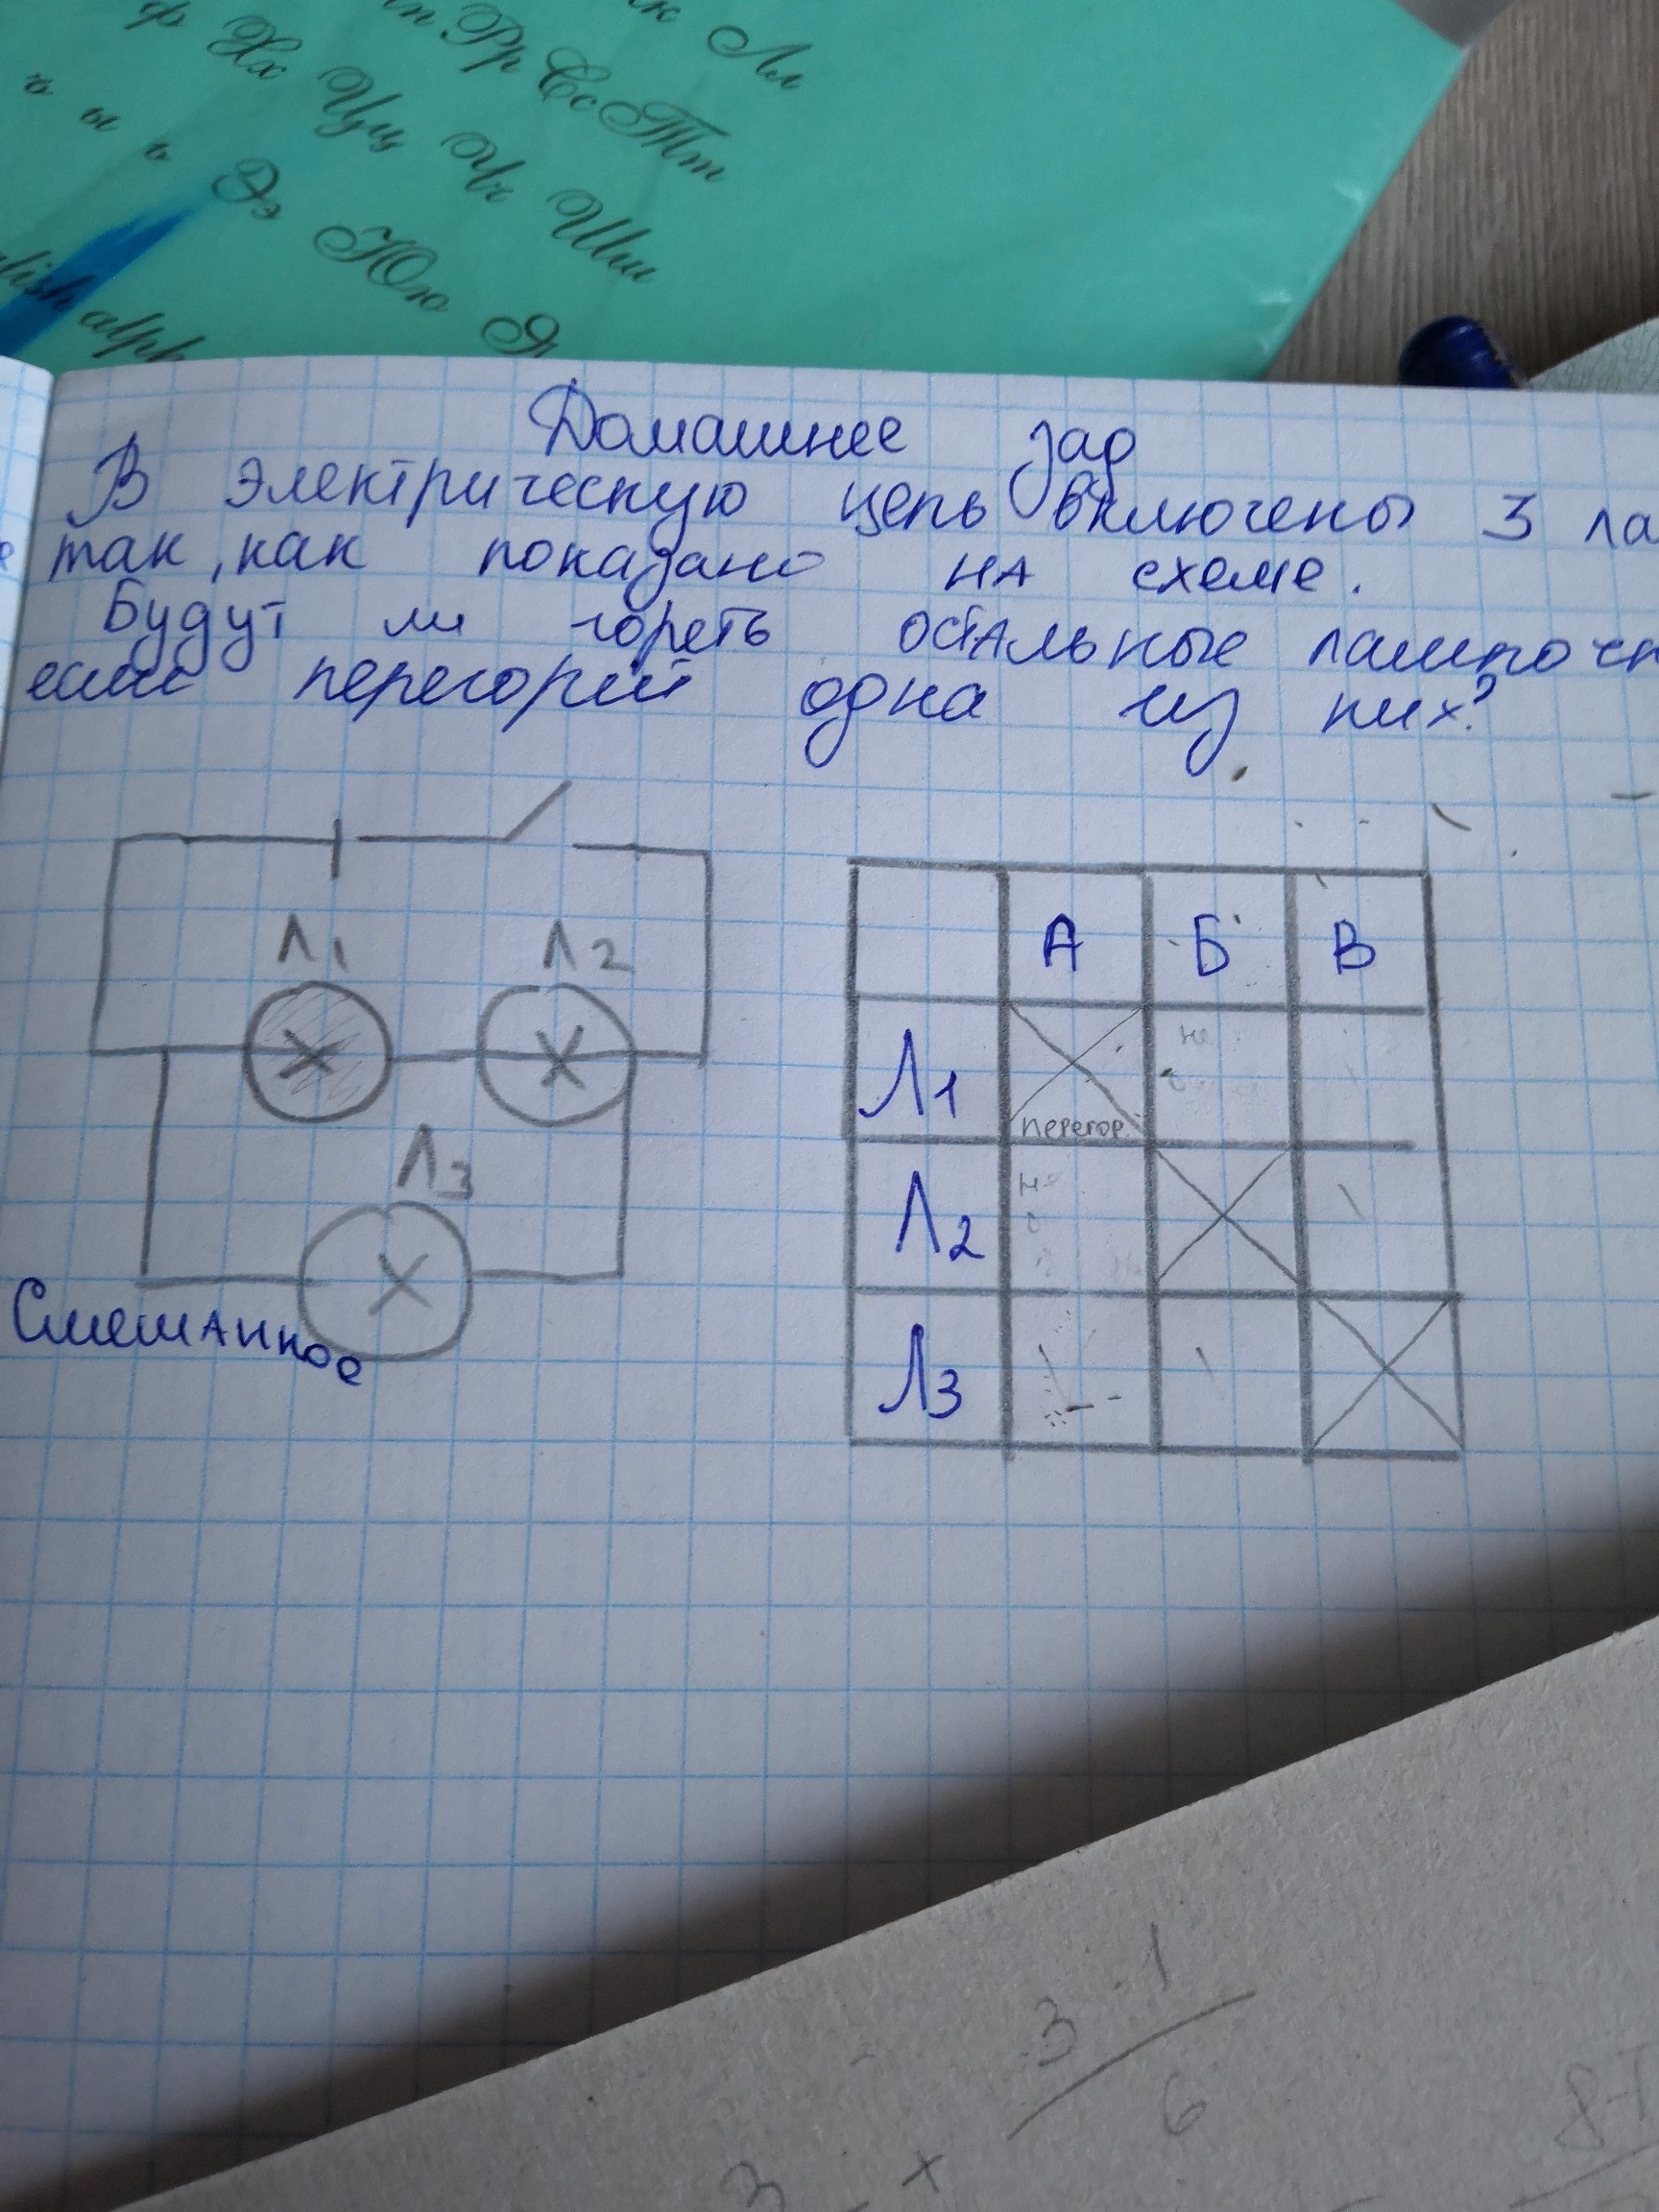 ф Хх Цц Чч Шш
Рр Сс Тт
Лл
ъ ы ь Ээ Юю Яя
alph
Домашнее зад
В электрическую цепь включены 3 ла
так, как показано на схеме.
Будут ли гореть остальные лампочк
если перегорит одна из них?
Л1 Л2
Л3
Смешанное
А Б В
Л1
перегор.
не
Л2
Л3
3 1
6
3 х
8